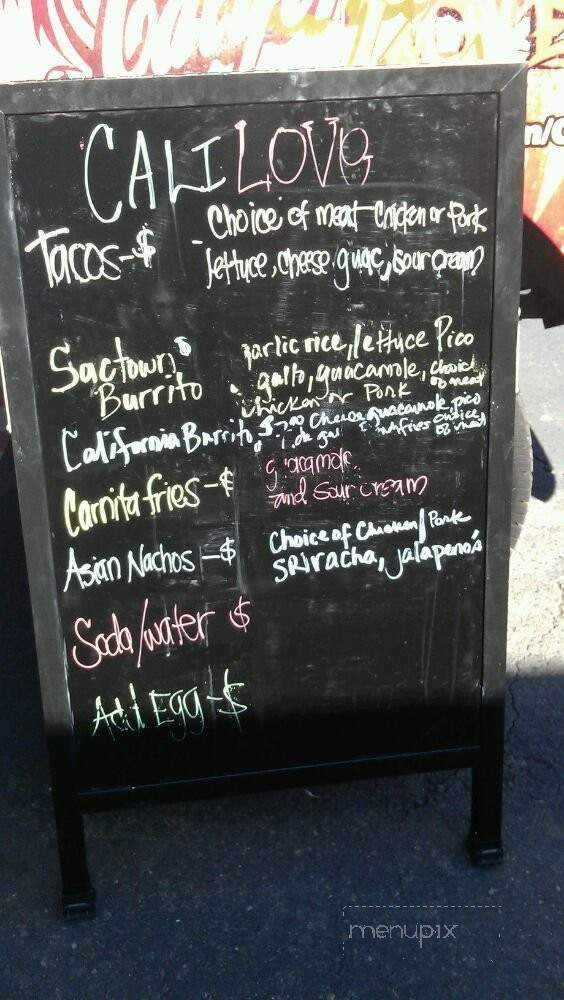 CALI LOVE
Tacos-$
Choice of meat Chicken or Pork
lettuce, cheese guac, sour cream
Sactown $
Burrito
garlic rice, lettuce Pico
gallo, guacamole, choice of meat
chicken or Pork
California Burrito $
Cheese guacamole pico
de gal fries choice of meat
Carnita fries-$
guacamole.
and sour cream
Asian Nachos-$
Choice of Chicken/Pork
SRiracha, jalapeno's
Soda/water $
Add Egg-$
menupix